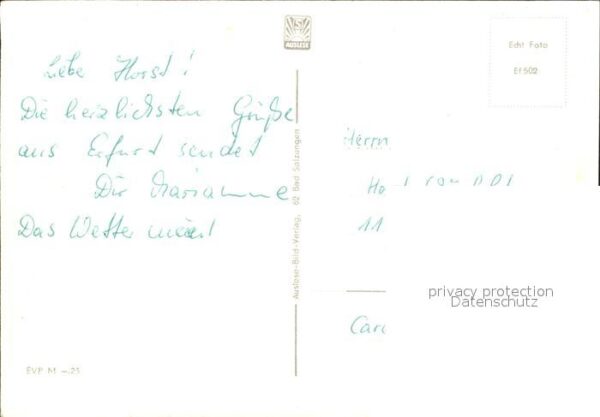 Liebe Horst!
Die herzlichsten Grüße
aus Erfurt sendet
Dir Marianne
Das Wetter
EVP M -.25
AUSLESE
Auslese-Bild-Verlag, 62 Bad Salzungen
Echt Foto
Ef 502
Herrn
11
Car
privacy protection
Datenschutz